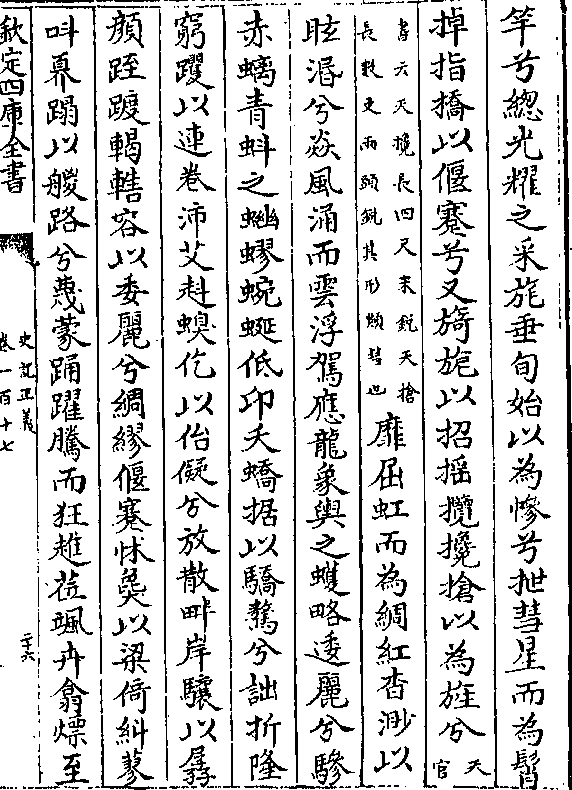 竿兮總光耀之采旄垂旬始以為幓兮抴彗星而為髾
掉指橋以偃蹇兮又旖旎以招搖攬攙搶以為旌兮天官
書云天攙長四尺末銳天搶
長數丈兩頭銳其形類彗也
靡屈虹而為綢紅杳渺以
眩湣兮焱風涌而雲浮駕應龍象輿之蠖略逶麗兮驂
赤螭青虯之蚴蟉蜿蜒低卬夭蟜据以驕驁兮詘折隆
窮躩以連卷沛艾赳螑仡以佁儗兮放散畔岸驤以孱
顏跮踱輵轄容以委麗兮綢繆偃蹇怵㚟以梁倚糾蓼
叫奡蹋以艐路兮蔑蒙踊躍騰而狂趡蒞颯卉翕熛至
欽定四庫全書
史記正義
卷一百十七
二十六